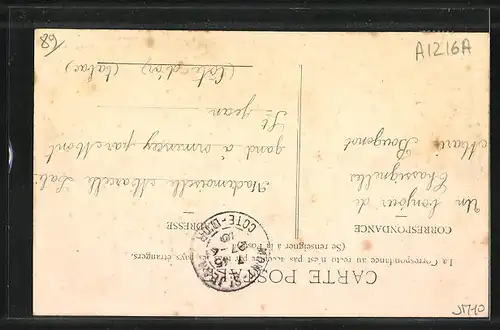 A1216A
89
CARTE POSTALE
La Correspondance au recto n'est pas acceptée par tous les pays étrangers.
(Se renseigner à la Poste)
CORRESPONDANCE
ADRESSE
Un bonjour de
Chassignelles
Marie Bougenot
Mademoiselle Marcelle
gand à Ormancey par Mont
St Jean
(Côte d'or) (tabac)
MONT-ST-JEAN
COTE-D'OR